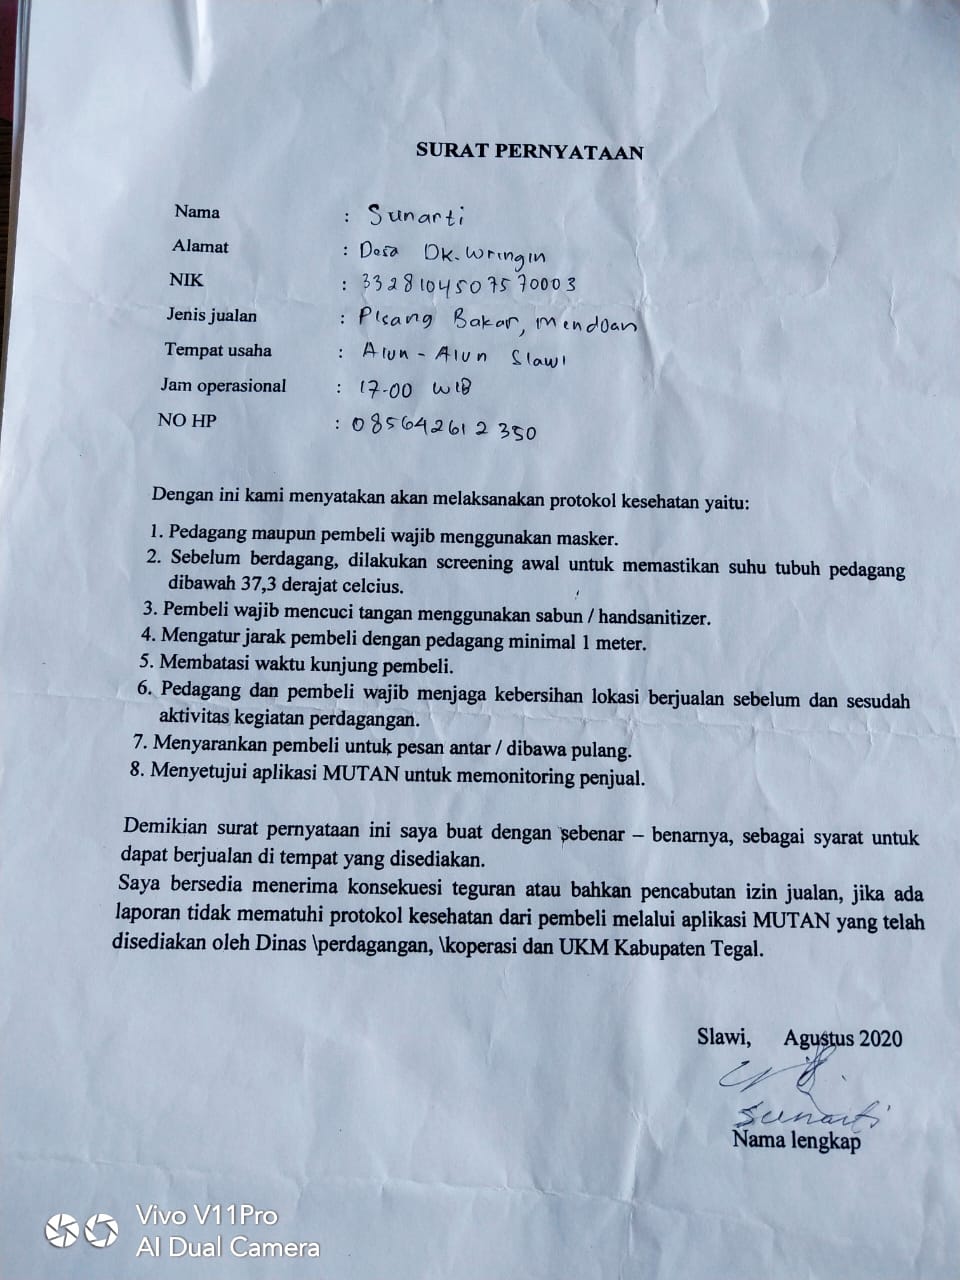 SURAT PERNYATAAN
Nama : Sunarti
Alamat : Desa Dk. Wringin
NIK : 3328104507570003
Jenis jualan : Pisang Bakar, Mendoan
Tempat usaha : Alun - Alun Slawi
Jam operasional : 17-00 WIB
NO HP : 085642612350
Dengan ini kami menyatakan akan melaksanakan protokol kesehatan yaitu:
1. Pedagang maupun pembeli wajib menggunakan masker.
2. Sebelum berdagang, dilakukan screening awal untuk memastikan suhu tubuh pedagang
dibawah 37,3 derajat celcius.
3. Pembeli wajib mencuci tangan menggunakan sabun / handsanitizer.
4. Mengatur jarak pembeli dengan pedagang minimal 1 meter.
5. Membatasi waktu kunjung pembeli.
6. Pedagang dan pembeli wajib menjaga kebersihan lokasi berjualan sebelum dan sesudah
aktivitas kegiatan perdagangan.
7. Menyarankan pembeli untuk pesan antar / dibawa pulang.
8. Menyetujui aplikasi MUTAN untuk memonitoring penjual.
Demikian surat pernyataan ini saya buat dengan sebenar – benarnya, sebagai syarat untuk
dapat berjualan di tempat yang disediakan.
Saya bersedia menerima konsekuesi teguran atau bahkan pencabutan izin jualan, jika ada
laporan tidak mematuhi protokol kesehatan dari pembeli melalui aplikasi MUTAN yang telah
disediakan oleh Dinas \perdagangan, \koperasi dan UKM Kabupaten Tegal.
Slawi, Agustus 2020
Sunarti
Nama lengkap
Vivo V11Pro
AI Dual Camera